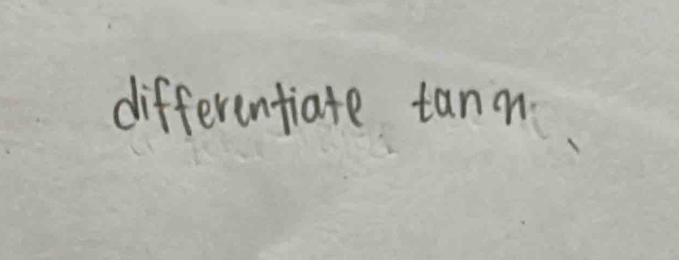 differentiate tan x